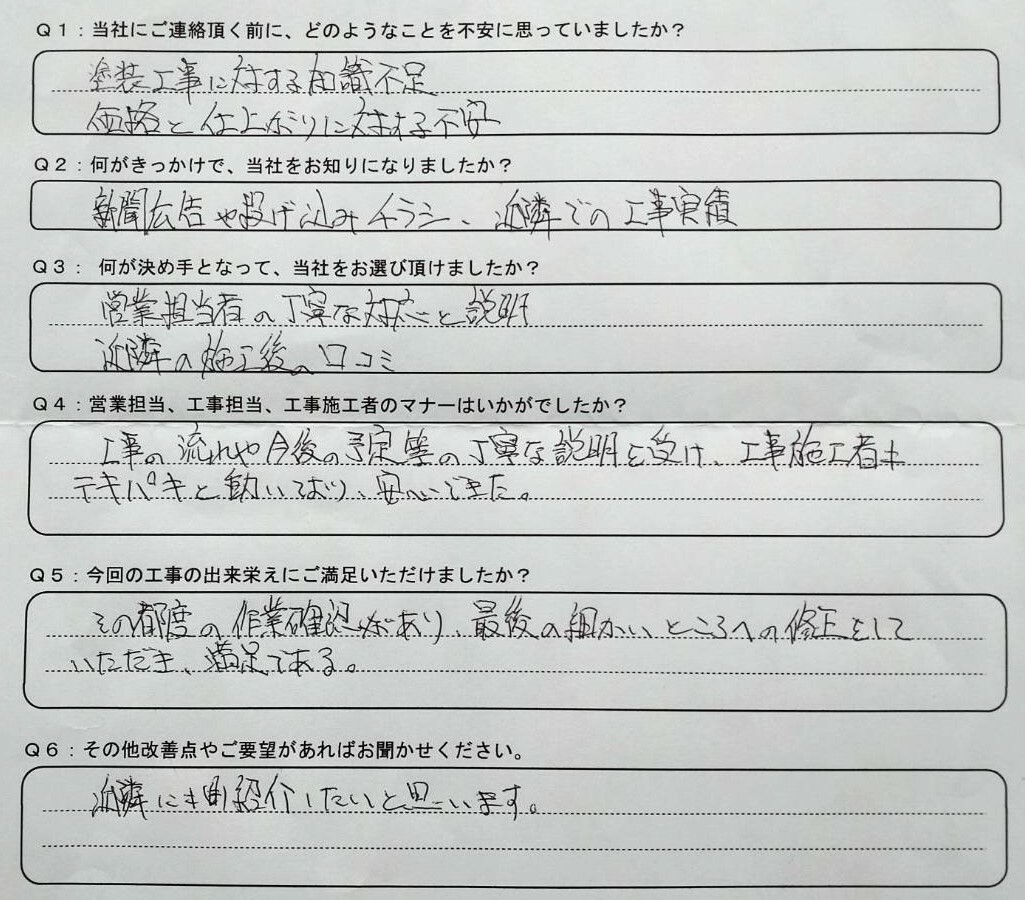 Q1：当社にご連絡頂く前に、どのようなことを不安に思っていましたか？
塗装工事に対する知識不足
価格と仕上がりに対する不安
Q2：何がきっかけで、当社をお知りになりましたか？
新聞広告や投げ込みチラシ、近隣での工事実績
Q3： 何が決め手となって、当社をお選び頂けましたか？
営業担当者の丁寧な対応と説明
近隣の施工後の口コミ
Q4：営業担当、工事担当、工事施工者のマナーはいかがでしたか？
工事の流れや今後の予定等の丁寧な説明を受け、工事施工者も
テキパキと動いており、安心できた。
Q5：今回の工事の出来栄えにご満足いただけましたか？
その都度の作業確認があり、最後の細かいところへの修正をして
いただき、満足である。
Q6：その他改善点やご要望があればお聞かせください。
近隣にも紹介したいと思います。